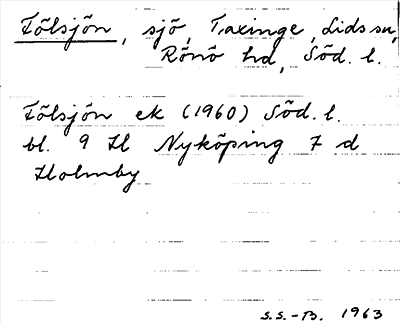 Fölsjön, sjö, Taxinge, Lids sn,
Rönö hd, Söd. l.
Fölsjön ek (1960) Söd. l.
bl. 9 H Nyköping 7 d
Holmby
S.S.-B. 1963